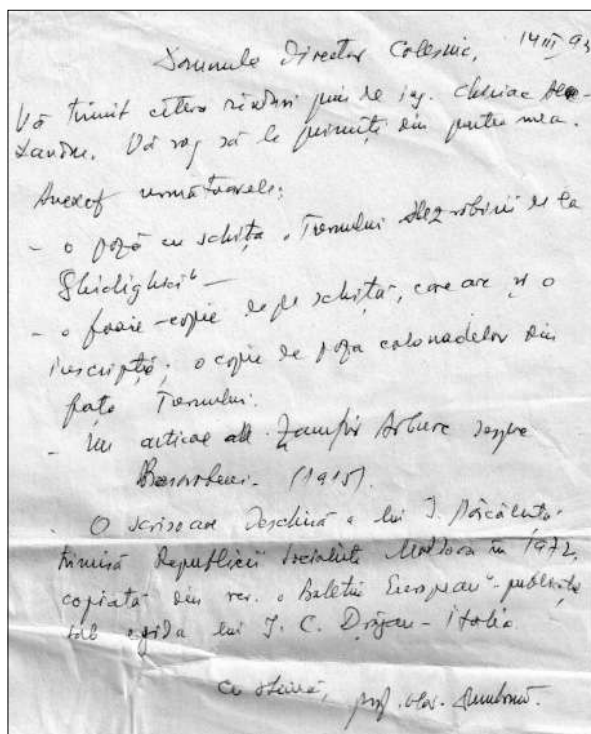 Domnule Director Colesnic, 14 III 93
Vă trimit câteva rânduri prin de ing. Chiriac Ale-
xandru. Vă rog să le primiți din partea mea.
Anexez următoarele:
- o poză cu schița „Turnului dezrobirii de la
Ghidighici" -
- o foaie-copie de pe schiță, care are și o
inscripție; o copie de poza colonadelor din
fața Turnului.
- Un articol al Zamfir Arbure despre
Basarabeni. (1915).
O scrisoare deschisă a lui I.
trimisă Republicii Socialiste Moldova în 1972,
copiată din rev. „Buletin European" - publicată
sub egida lui J. C. Drăgan - Italia.
Cu stimă, prof.